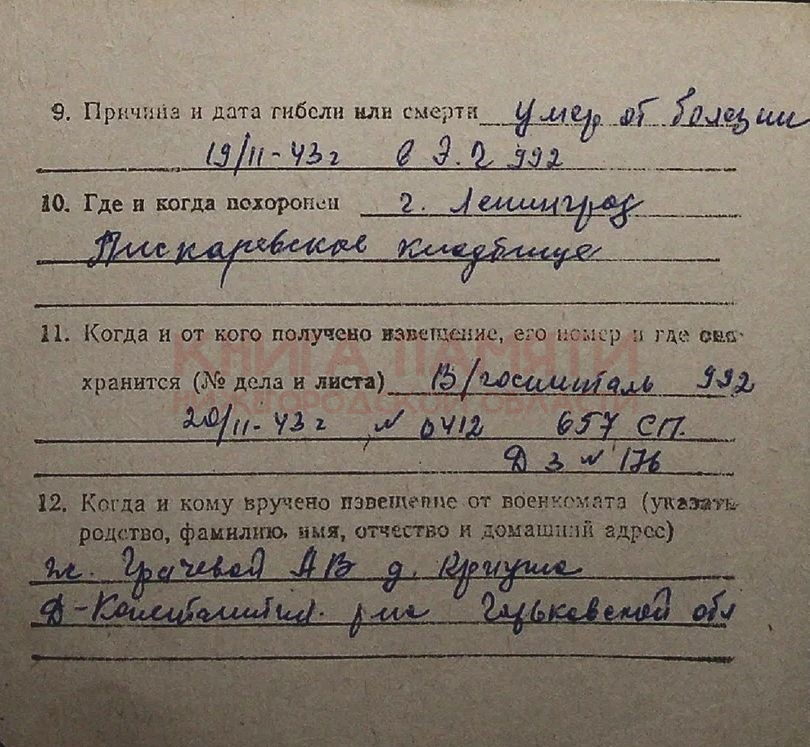 9. Причина и дата гибели или смерти умер от болезни
19/II-43г в Э.Г 992
10. Где и когда похоронен г. Ленинград
Пискаревское кладбище
11. Когда и от кого получено извещение, его номер и где оно
КНИГА ПАМЯТИ
хранится (№ дела и листа) В/госпиталь 992
НИЖЕГОРОДСКОЙ ОБЛАСТИ
20/II-43г № 0412 657 СП.
Д 3 № 176
12. Когда и кому вручено извещение от военкомата (указать
родство, фамилию, имя, отчество и домашний адрес)
ж. Грачевой АВ д. Криуша
Д-Константин. р-на Горьковской обл